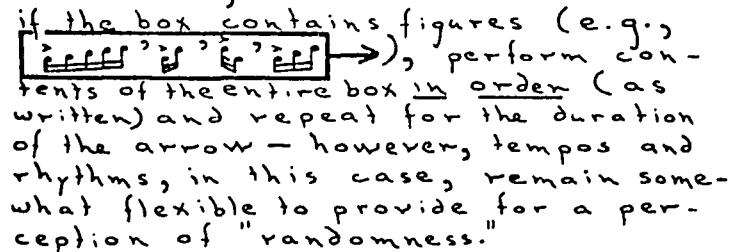 if the box contains figures (e.g.,
), perform con-
tents of the entire box in order (as
written) and repeat for the duration
of the arrow — however, tempos and
rhythms, in this case, remain some-
what flexible to provide for a per-
ception of "randomness."